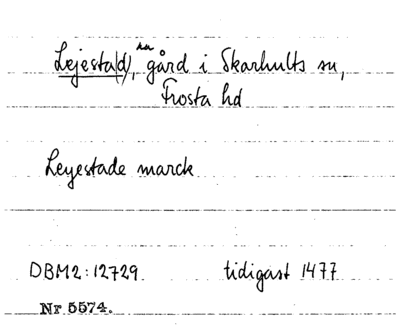 Lejesta(d), gård i Skarhults sn,
Frosta hd
Leyestade marck
DBM2:12729. tidigast 1477
Nr 5574.